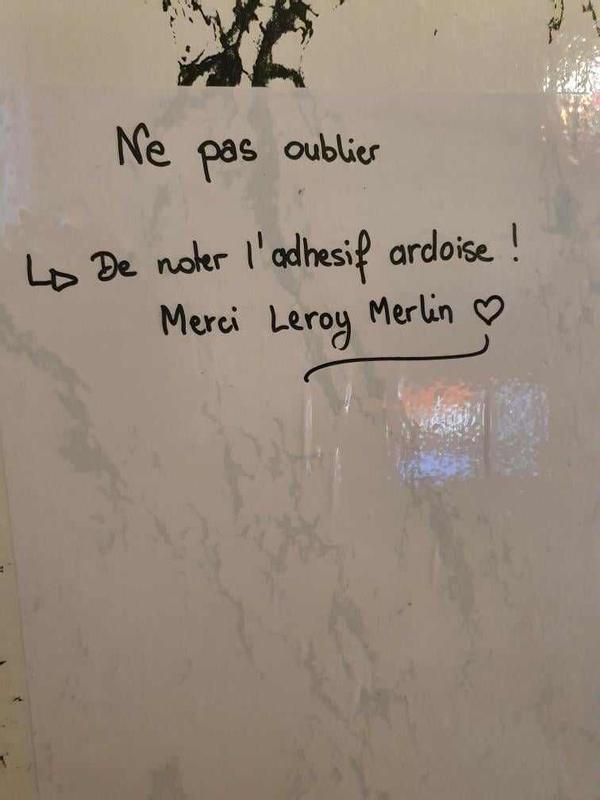 Ne pas oublier
↳ De noter l'adhesif ardoise !
Merci Leroy Merlin ♡